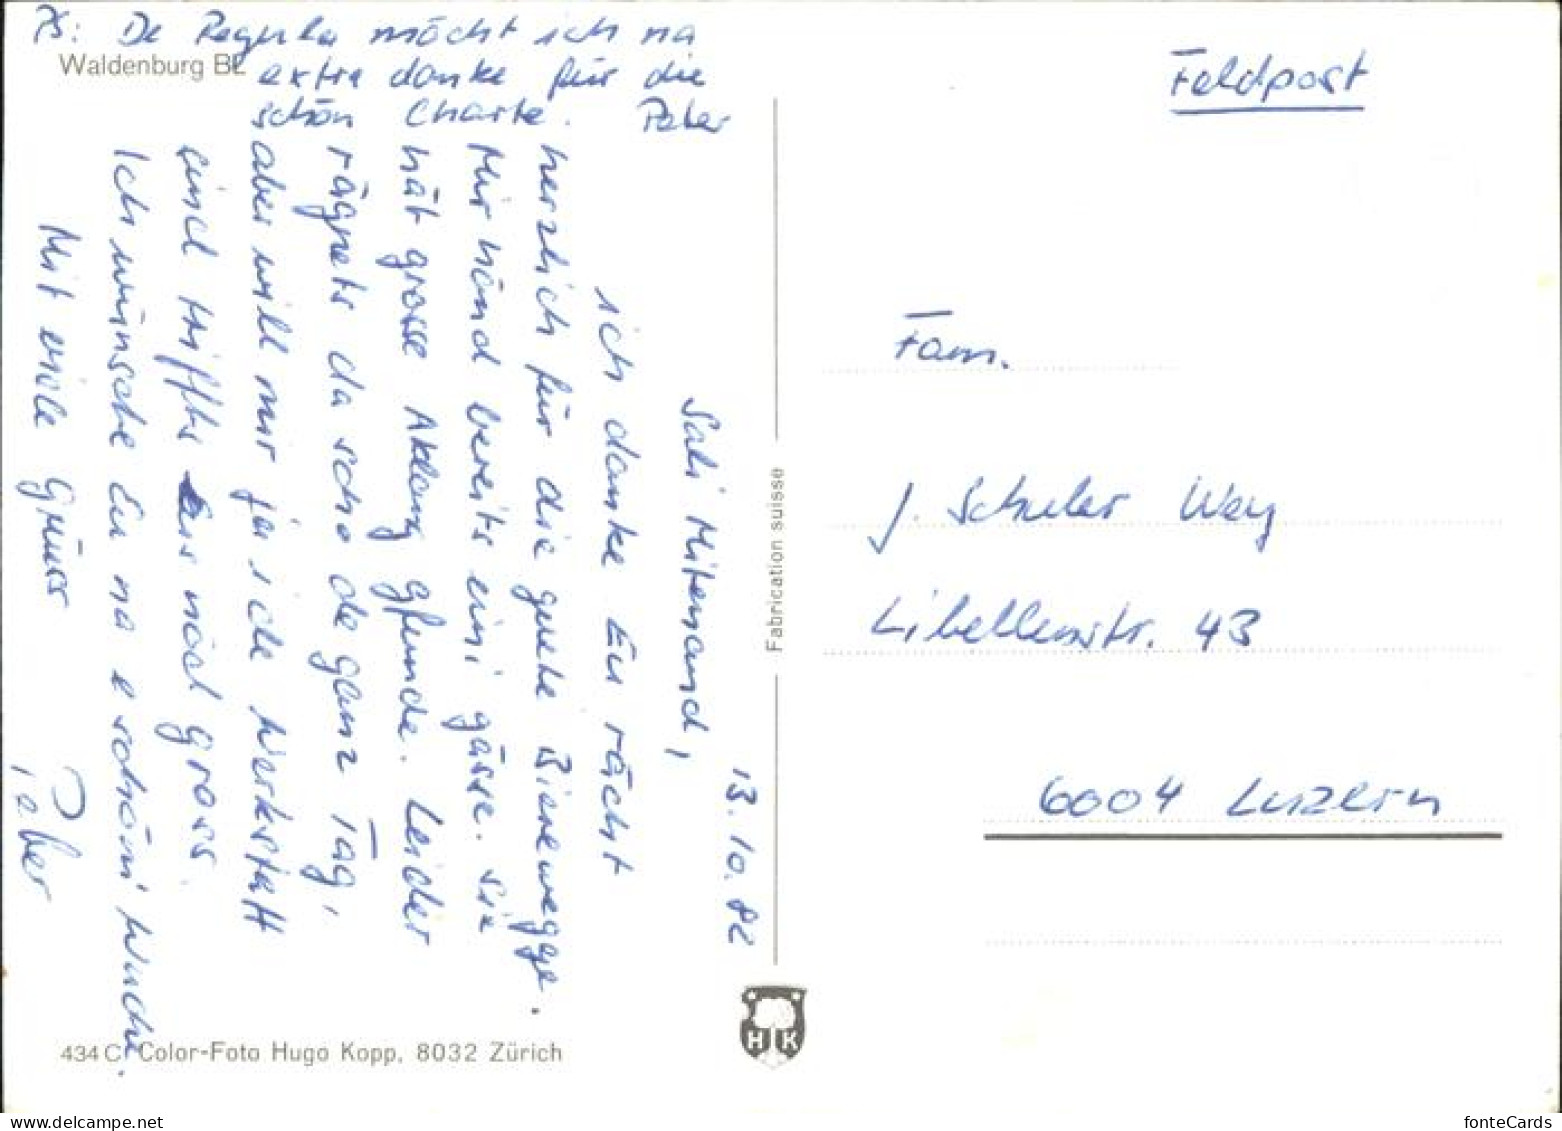 PS: De Regula möcht ich na
extra danke für die
schön Charte. Peter
Waldenburg BL
13.10.82
Sali Mitenand,
ich danke Eu rächt
herzlich für die guete Biirewegge.
Mir händ bereits eini gässe. Sie
hät grosse Aklang gfunde. Leider
rägnets da scho de ganz Tag,
aber will mir ja i de Werkstatt
sind triffts eus nöd gross.
Ich wünsche Eu na e schöni Wuche.
Mit viele Grüess
Peter
434 C Color-Foto Hugo Kopp, 8032 Zürich
Fabrication suisse
H K
Feldpost
Fam.
J. Schuler Wey
Libellenstr. 43
6004 Luzern
www.delcampe.net
fonteCards